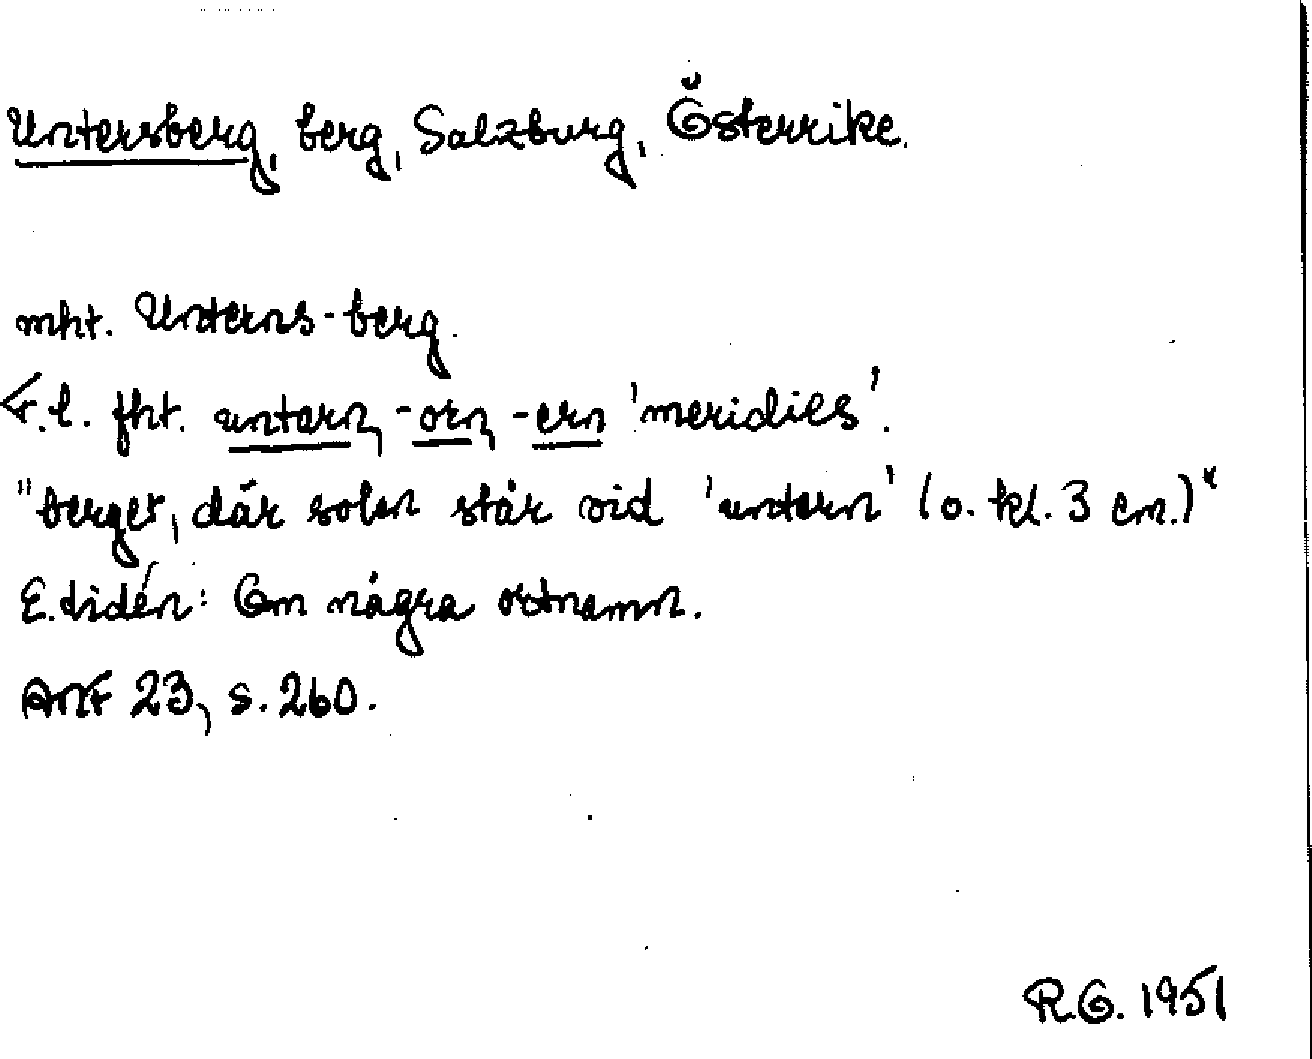 Untersberg, berg, Salzburg, Österrike.
mht. Unterns-berg.
F.l. fht. untarn, -orn, -ern 'meridies'.
"berget, där solen står vid 'undern' (o. kl. 3 em.)"
E. Lidén: Om några ortnamn.
ANF 23, s. 260.
R.G. 1951